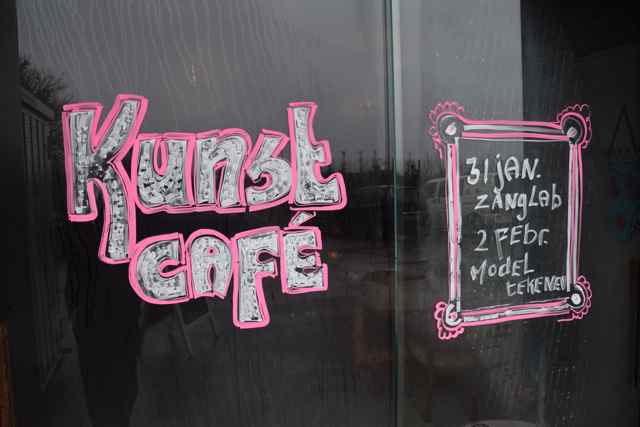 Kunst
CAFÉ
31 JAN.
ZANGLAB
2 FEBR.
MODEL
TEKENEN